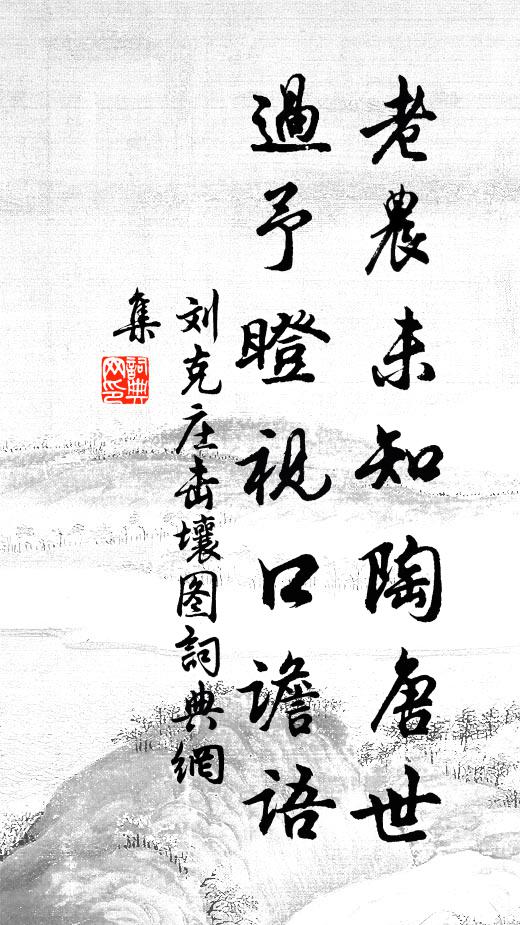 老農未知陶唐世
過予瞪視口譫語
刘克庄击壤图詞典網
集
詞典
网印